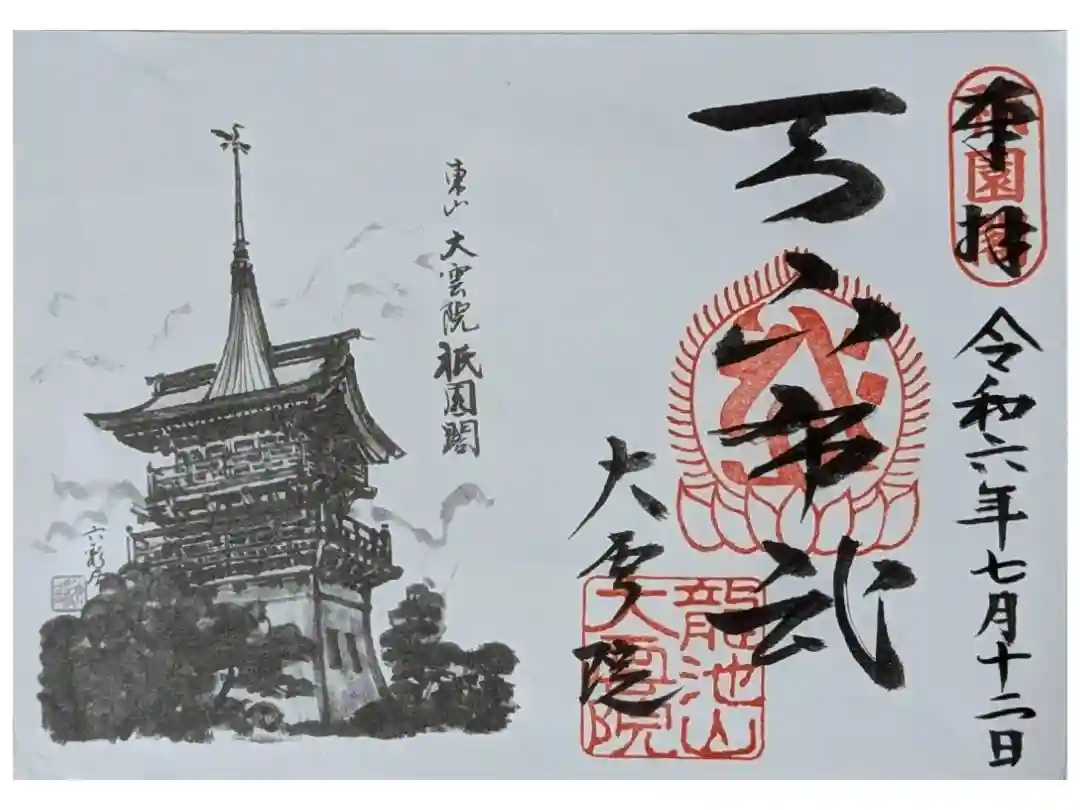 奉拝
祇園閣
令和六年七月十二日
天下布武
大雲院
龍池山
大雲院
東山 大雲院 祇園閣